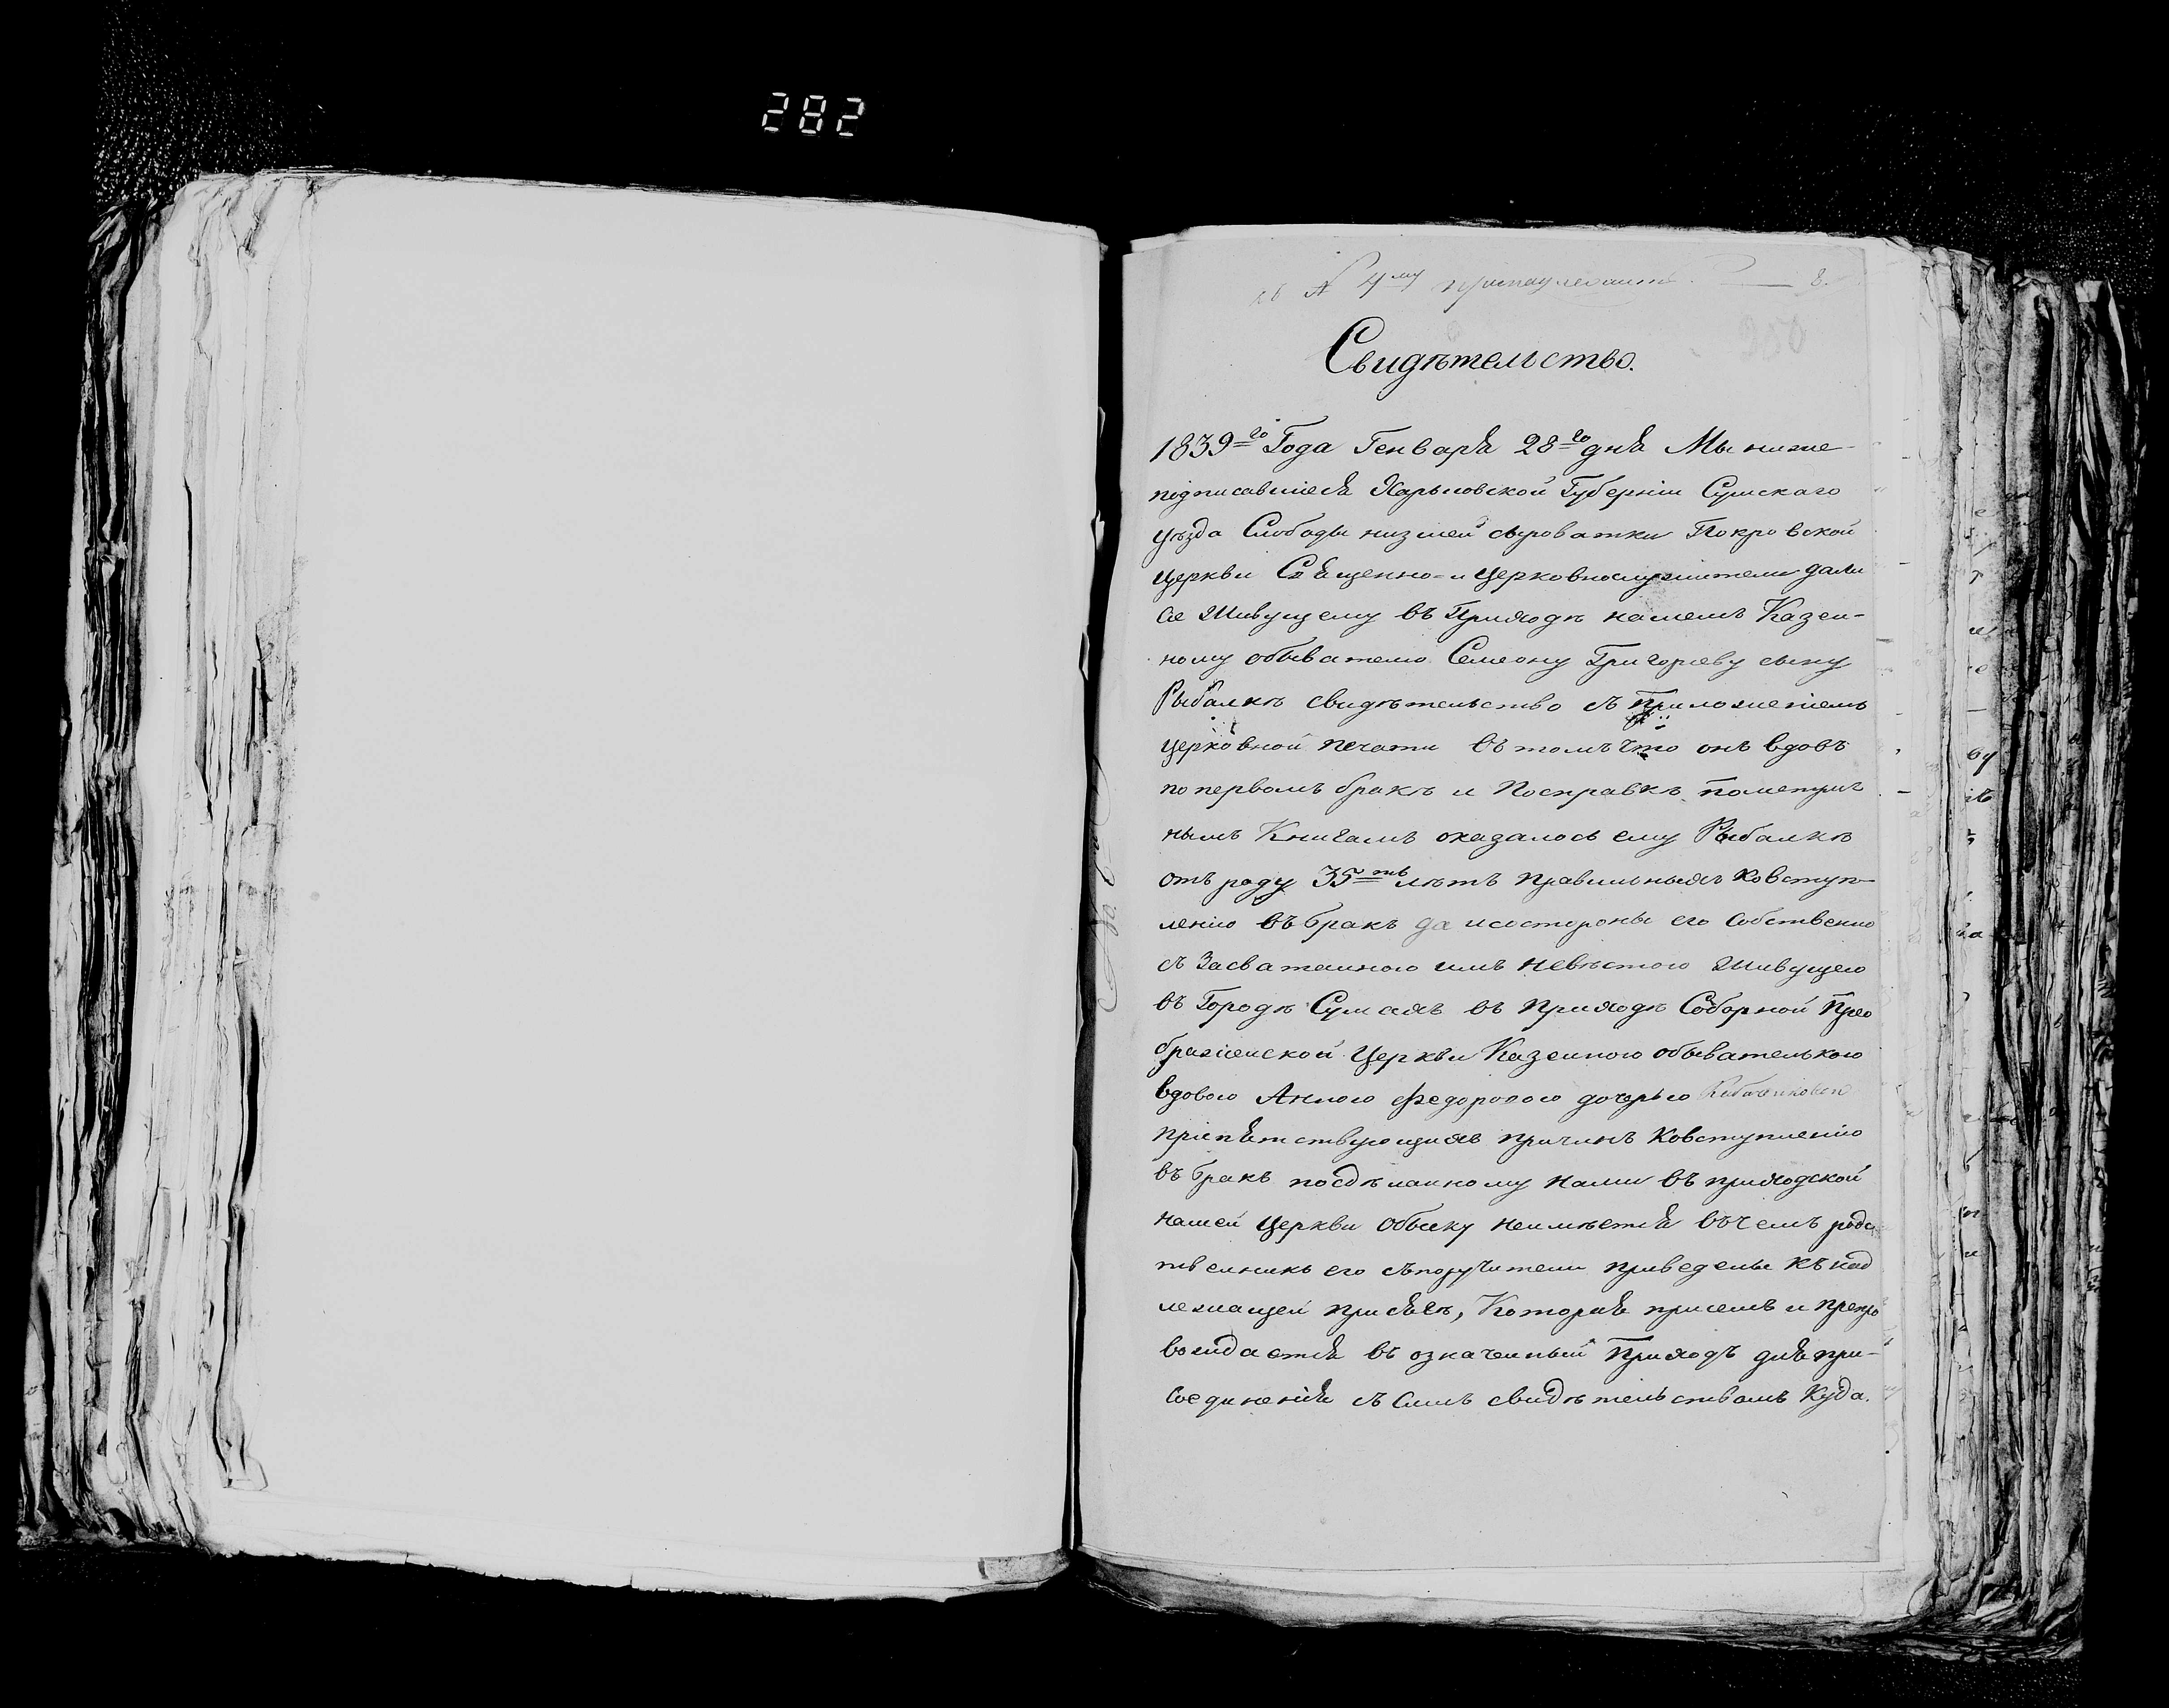 282
къ № 4му принадлежитъ 8.
Свидѣтельство.
1839го Года Генваря 28го дня Мы ниже-
підписавшіеся Харьковской Губерніи Сумскаго
уѣзда Слободы низшей сыроватки Покровской
Церкви Священно-и Церковнослужители дали
сіе Живущему въ Приходѣ нашемъ Казен-
ному обывателю Семеону Григорьеву сыну
Рыбалкѣ свидѣтельство съ Приложеніемъ
церковной печати въ томъ что онъ вдовъ
по первомъ бракѣ и Посправкѣ
нымъ Книгамъ оказалось ему Рыбалкѣ
отъ роду 35ть лѣтъ правильныхъ ковступ-
ленію въ бракъ да исостороны его собственно
съ Засватанною имъ невѣстою Живущею
въ Городѣ Сумахъ въ приходѣ Соборной Прео
браженской Церкви Казенною обывателькою
вдовою Анною Федоровою дочерью
препятствующихъ причинъ ковступленію
въ бракъ посдѣланному нами въ приходской
нашей Церкви обыску неимѣется въчемъ родс
твенникъ его съпоручители приведены къ над
лежащей присягѣ, Которая присемъ и препро
вождается въ означенный Приходъ для при-
соединенія съ симъ свидѣтельствомъ Куда.